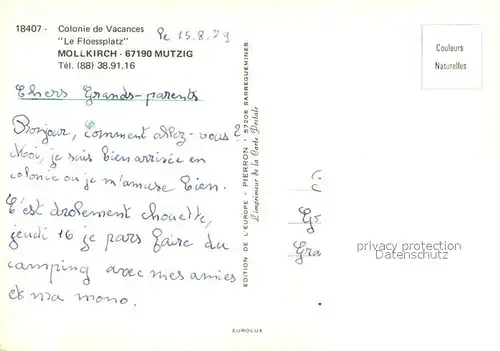 18407 - Colonie de Vacances
"Le Floessplatz"
MOLLKIRCH - 67190 MUTZIG
Tél. (88) 38.91.16
Le 15.8.79
Couleurs
Naturelles
Chers Grands-parents
Bonjour, comment allez-vous?
Moi, je suis bien arrivée en
colonie ou je m'amuse bien.
C'est drolement chouette,
jeudi 16 je pars faire du
camping avec mes amies
et ma mono.
EDITION DE L'EUROPE - PIERRON - 57206 SARREGUEMINES
L'imprimeur de la Carte Postale
Gra
privacy protection
Datenschutz
EUROLUX